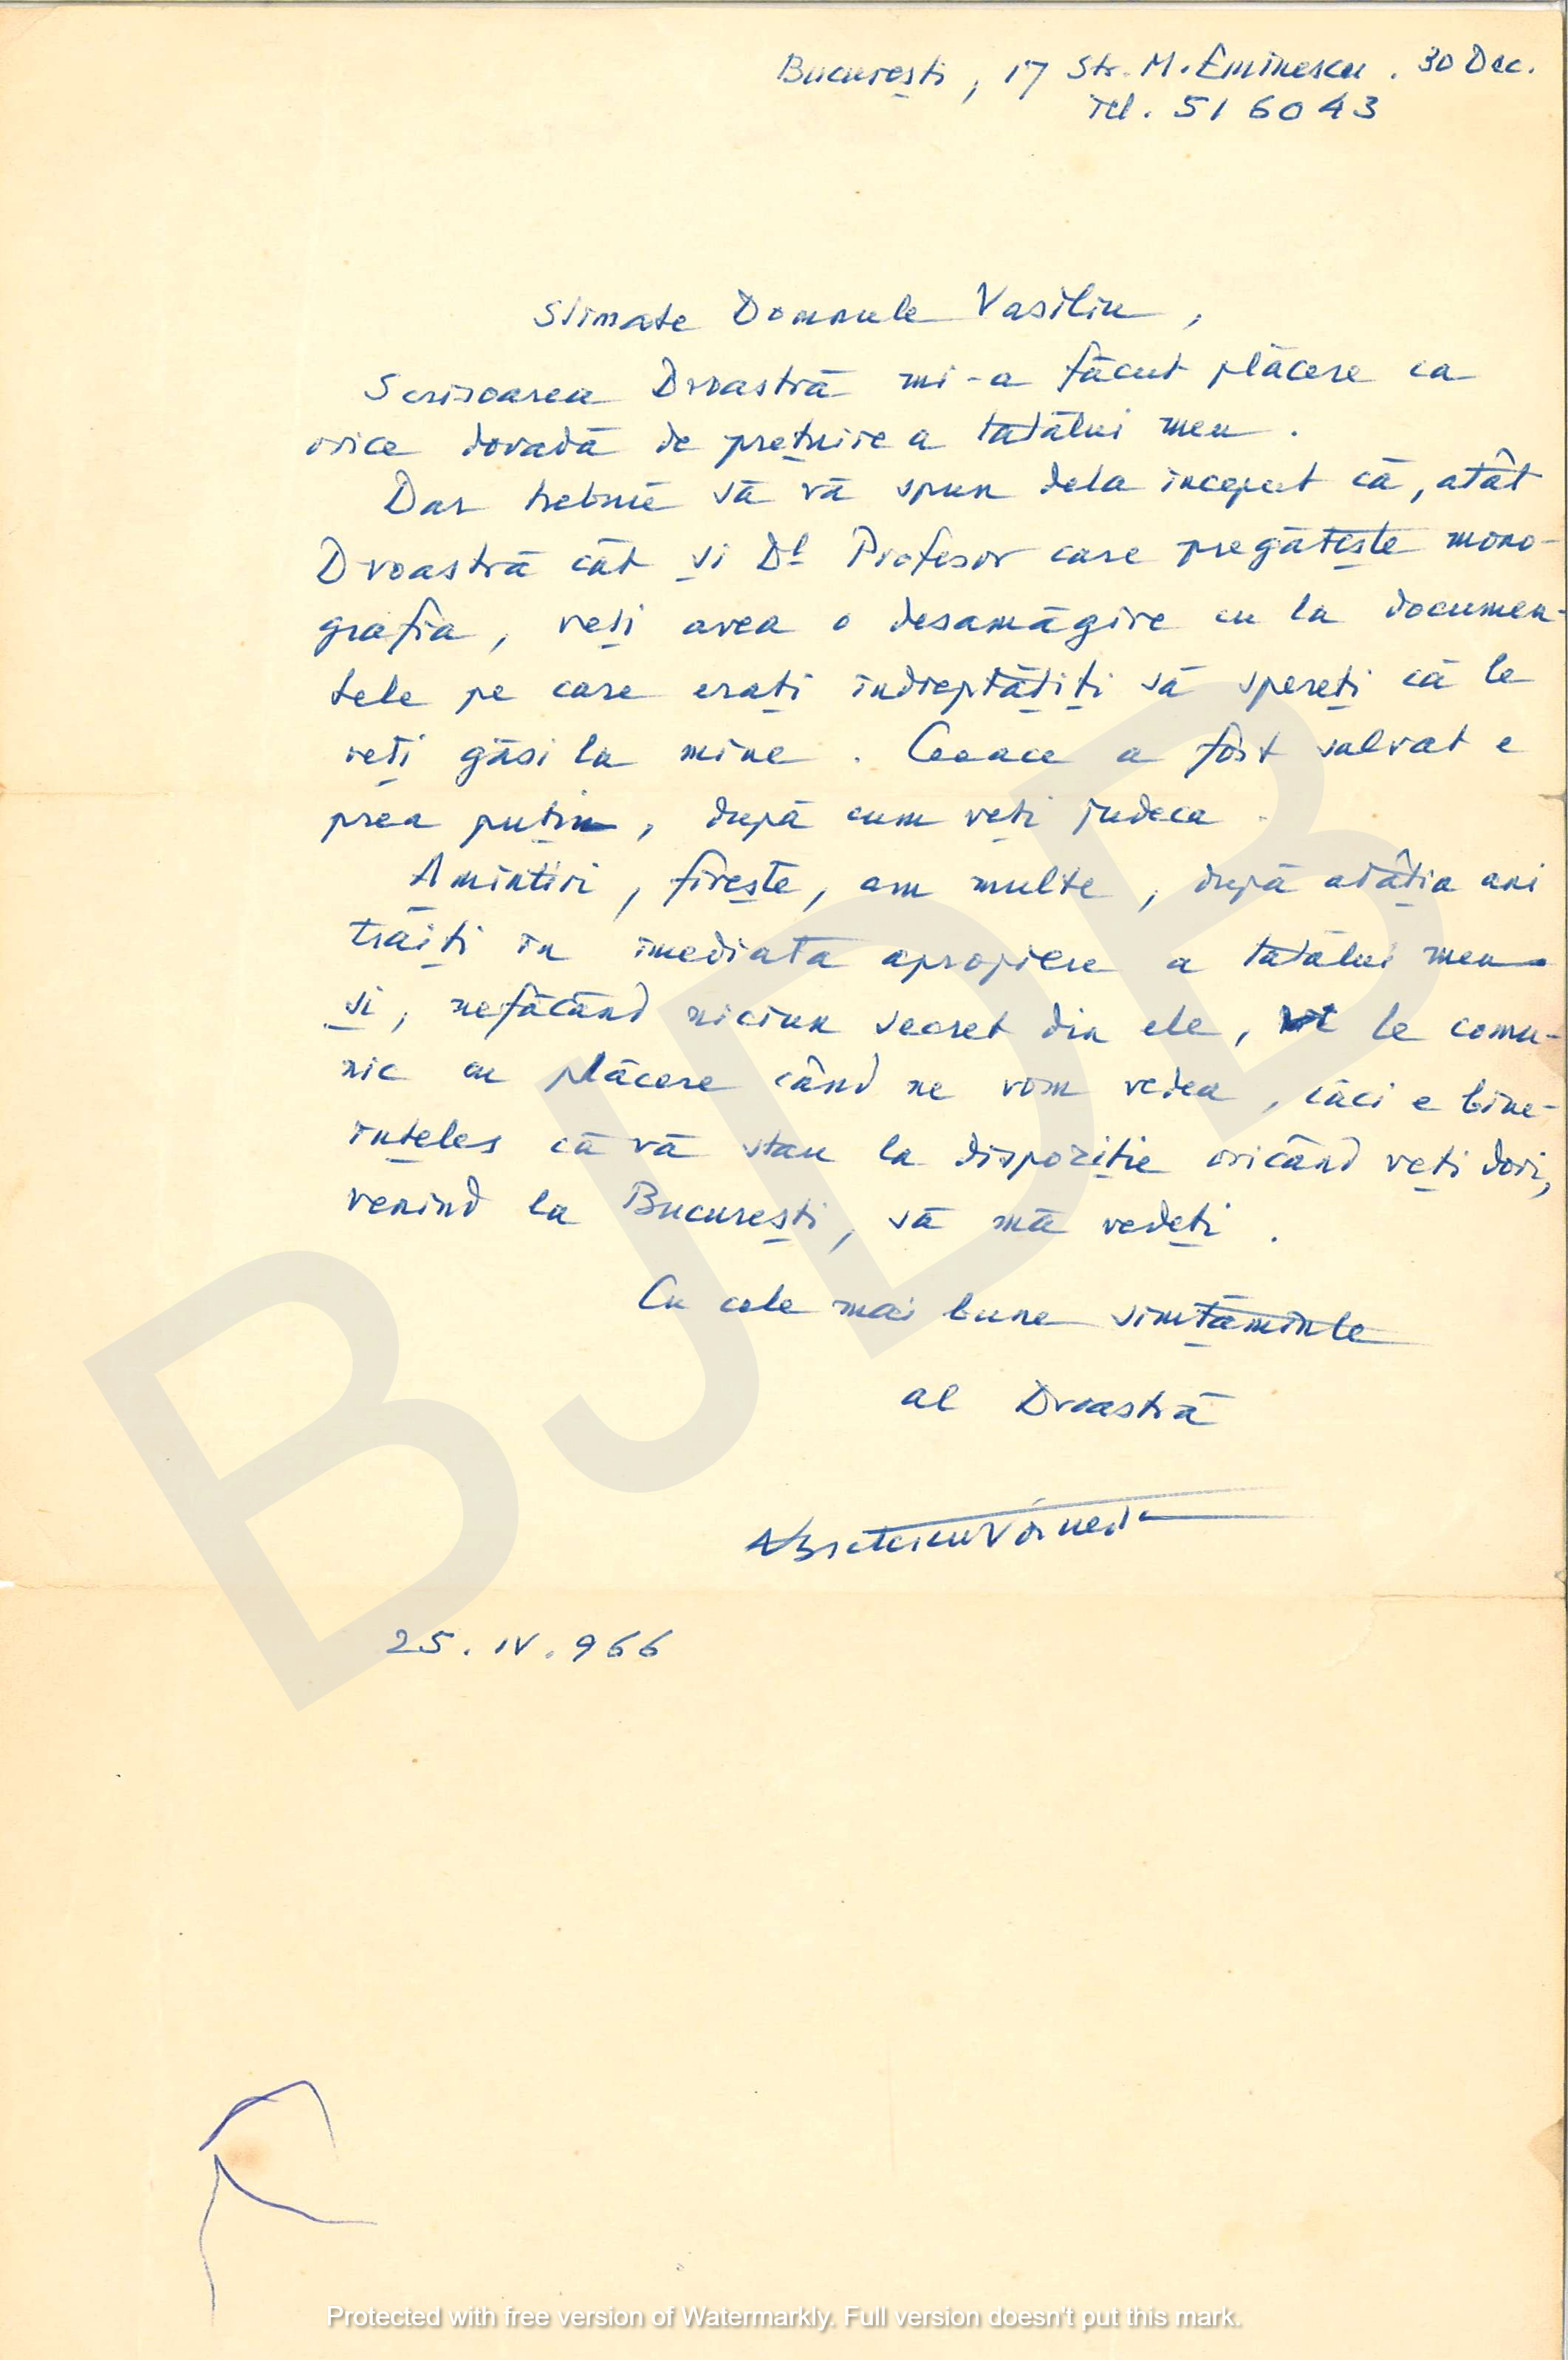 București, 17 Str. M. Eminescu. 30 Dec.
Tel. 51 60 43
Stimate Domnule Vasiliu,
Scrisoarea Dvoastră mi-a făcut plăcere ca
orice dovadă de prețuire a tatălui meu.
Dar trebuie să vă spun dela inceput că, atât
Dvoastră cât și Dl Profesor care pregătește mono-
grafia, veți avea o desamăgire cu la documen-
tele pe care erați îndreptățiți să sperați că le
veți găsi la mine. Ceeace a fost salvat e
prea puțin, după cum veți judeca.
Amintiri, firește, am multe, după atâția ani
trăiți in imediata apropiere a tatălui meu
și, nefăcând niciun secret din ele, le comu-
nic cu plăcere când ne vom vedea, căci e bine-
ințeles că vă stau la dispoziție oricând veți dori,
venind la București, să mă vedeți.
Cu cele mai bune simțăminte
al Dvoastră
25. IV. 966
BJDB
Protected with free version of Watermarkly. Full version doesn't put this mark.